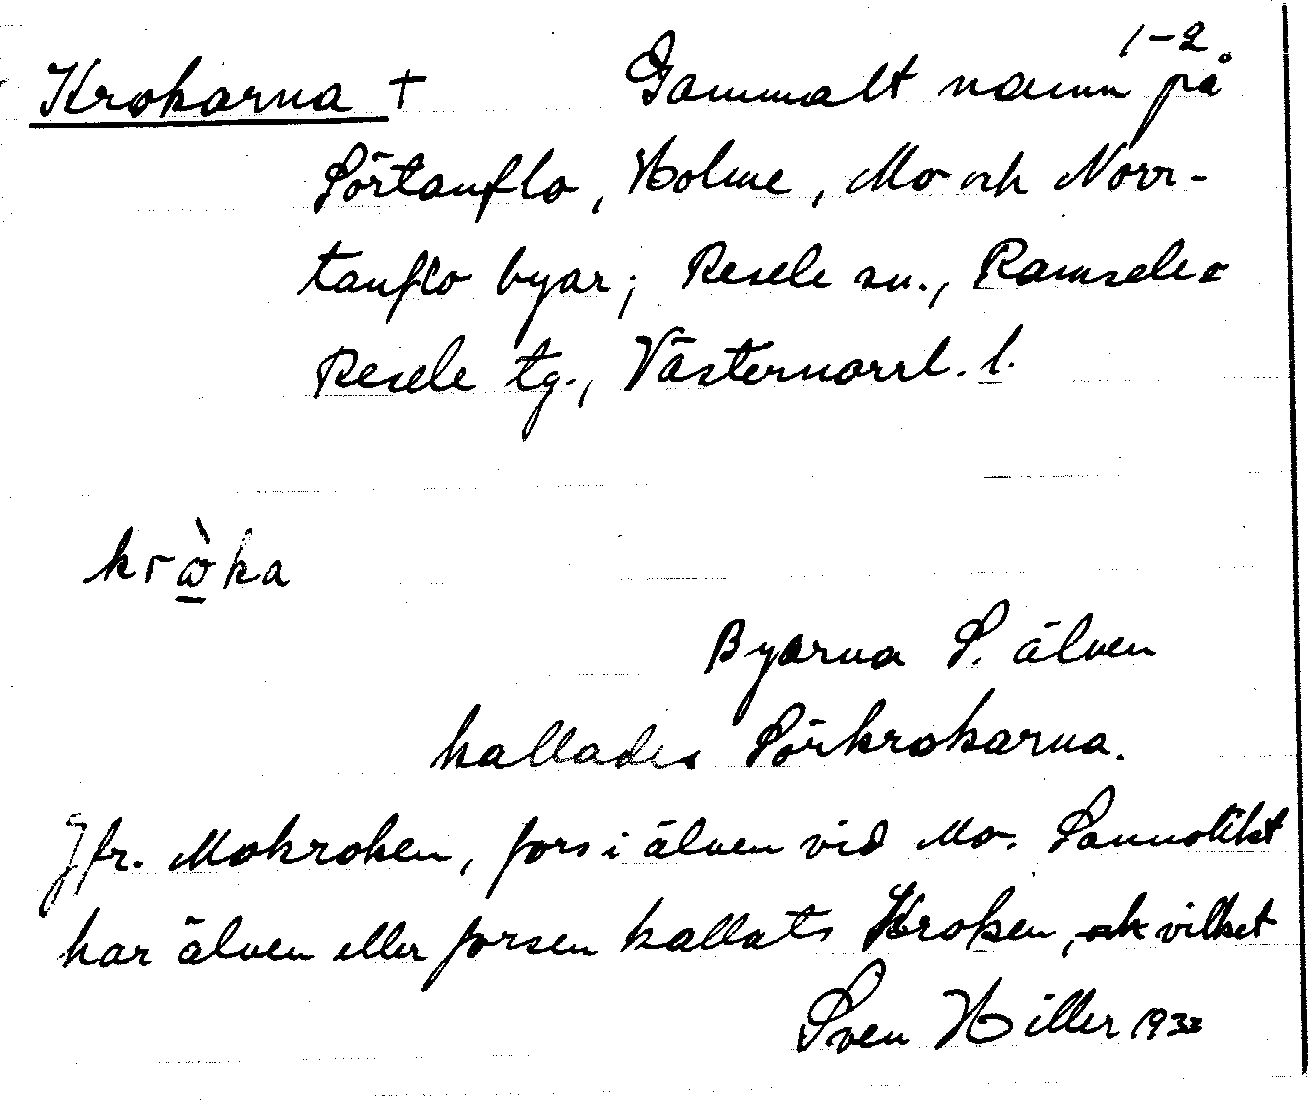 1-2.
Krokarna + Gammalt namn på
Sörtanflo, Holme, Mo och Norr-
tanflo byar; Resele sn., Ramsele-
Resele tg., Västernorrl. l.
Byarna S. älven
kallades Sörkrokarna.
Jfr. Mokroken, fors i älven vid Mo. Sannolikt
har älven eller forsen kallats Kroken, och vilket
Sven Hiller 1933